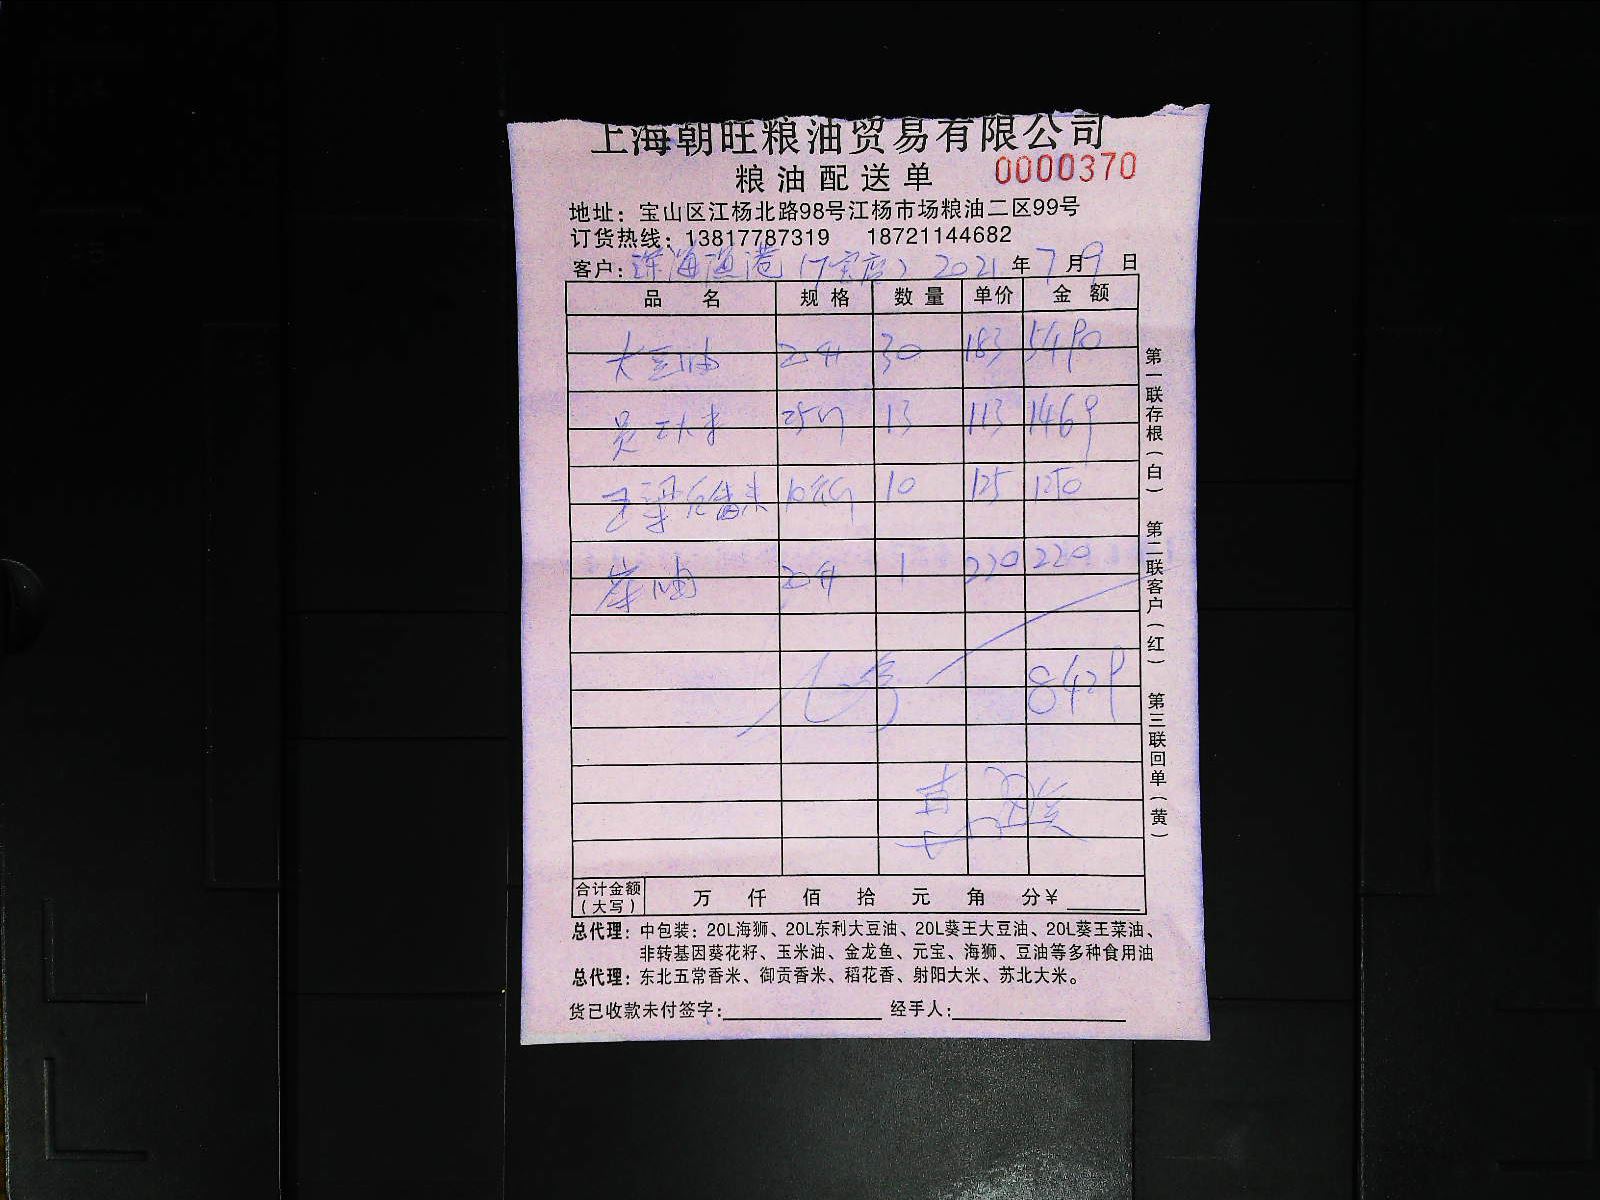 上海朝旺粮油贸易有限公司
粮油配送单 0000370
地址：宝山区江杨北路98号江杨市场粮油二区99号
订货热线：13817787319 18721144682
客户：深海渔港（7宝店） 2021年7月9日
品名 规格 数量 单价 金额
大豆油 20升 30 183 5490
员工大米 25 13 113 1469
10 10 125 1250
菜油 20升 1 220 220
8429
合计金额（大写） 万 仟 佰 拾 元 角 分¥
总代理：中包装：20L海狮、20L东利大豆油、20L葵王大豆油、20L葵王菜油、
非转基因葵花籽、玉米油、金龙鱼、元宝、海狮、豆油等多种食用油
总代理：东北五常香米、御贡香米、稻花香、射阳大米、苏北大米。
货已收款未付签字： 经手人：
第一联存根（白） 第二联客户（红） 第三联回单（黄）